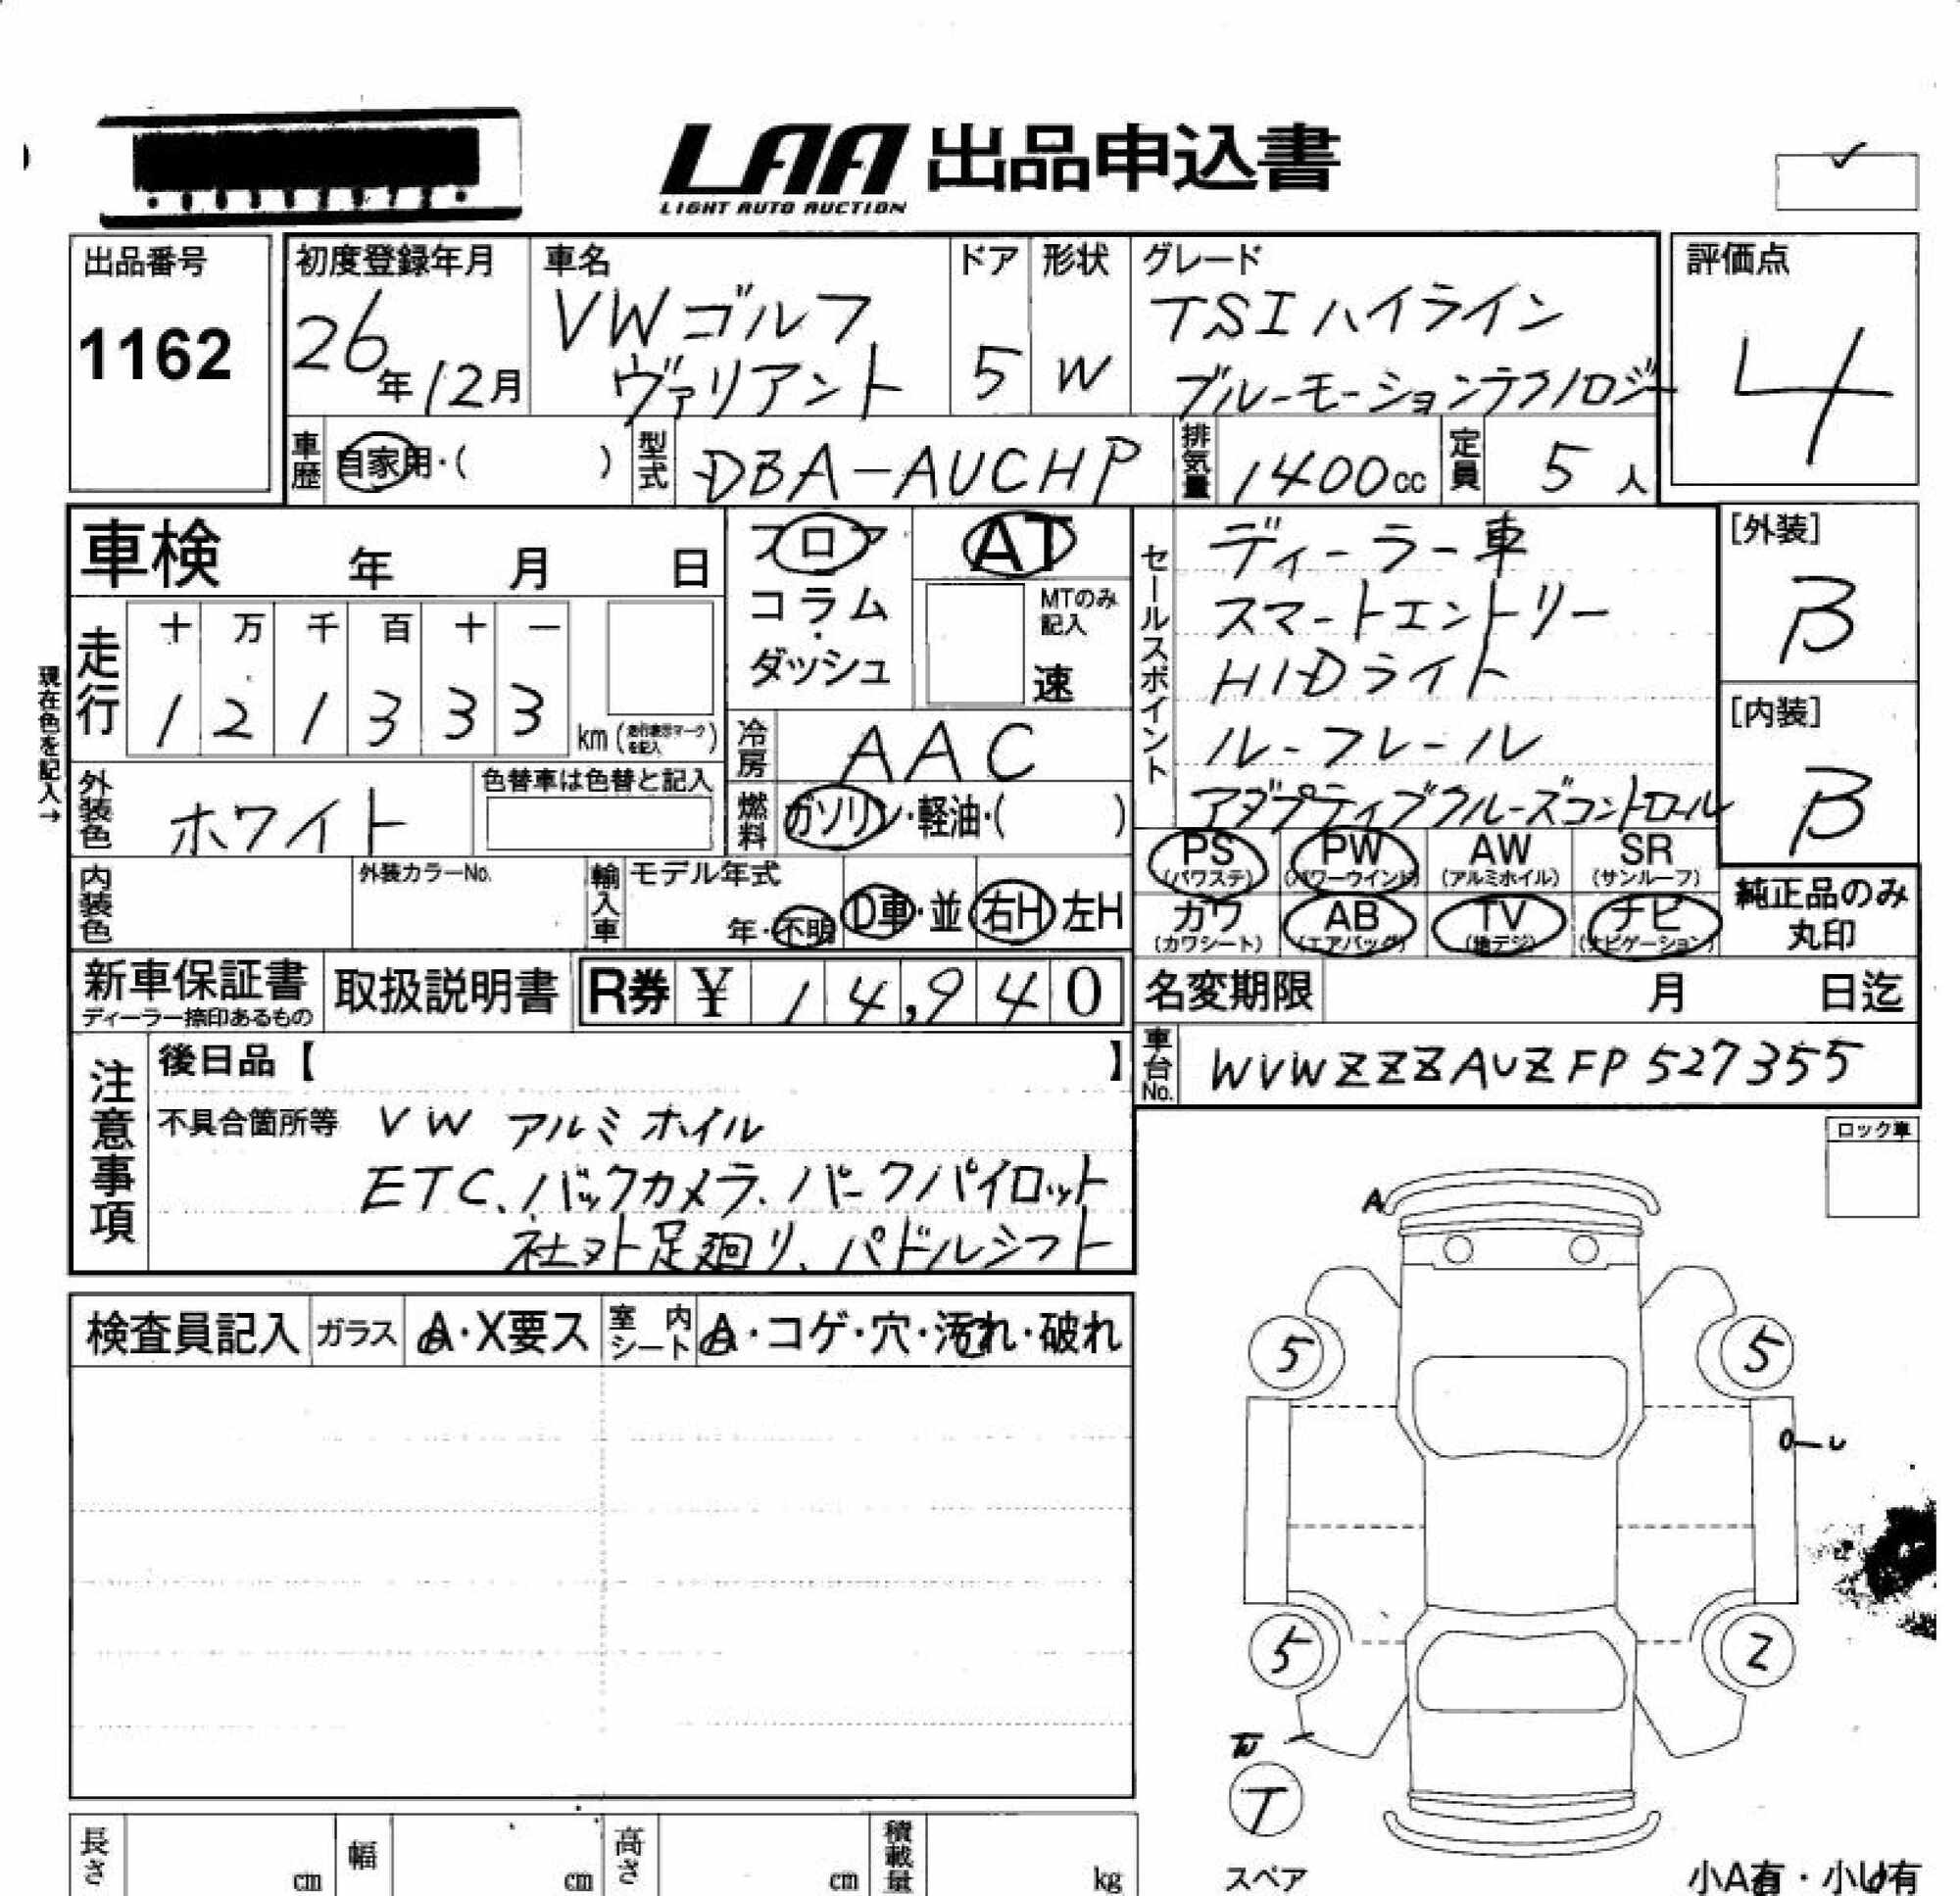 LAA 出品申込書
LIGHT AUTO AUCTION
出品番号
1162
初度登録年月
26年12月
車名
VW ゴルフ
ヴァリアント
ドア
5
形状
W
グレード
TSIハイライン
ブルーモーションテクノロジー
評価点
4
車歴 自家用・( )
型式 DBA-AUCHP
排気量 1400cc
定員 5人
車検 年 月 日
走行
十 万 千 百 十 一
1 2 1 3 3 3 km (走行表示マークを記入)
現在色を記入→
外装色 ホワイト
色替車は色替と記入
内装色
外装カラーNo.
フロア
コラム
・
ダッシュ
AT
MTのみ
記入
速
冷房 AAC
燃料 ガソリン・軽油・( )
輸入車 モデル年式
年・不明 D車・並 右H 左H
セールスポイント
ディーラー車
スマートエントリー
HIDライト
ルーフレール
アダプティブクルーズコントロール
[外装]
B
[内装]
B
PS (パワステ) PW (パワーウインド) AW (アルミホイル) SR (サンルーフ)
カワ (カワシート) AB (エアバッグ) TV (地デジ) ナビ (ナビゲーション)
純正品のみ
丸印
新車保証書
ディーラー捺印あるもの
取扱説明書
R券 ¥ 14,940
名変期限 月 日迄
車台No. WVWZZZAUZFP527355
注意事項
後日品【 】
不具合箇所等 VW アルミホイル
ETC、バックカメラ、パークパイロット
社外足廻り、パドルシフト
ロック車
検査員記入 ガラス A・X要ス 室内シート A・コゲ・穴・汚れ・破れ
A
5 5
U
5 2
T
スペア
長さ cm 幅 cm 高さ cm 積載量 kg
小A有・小U有